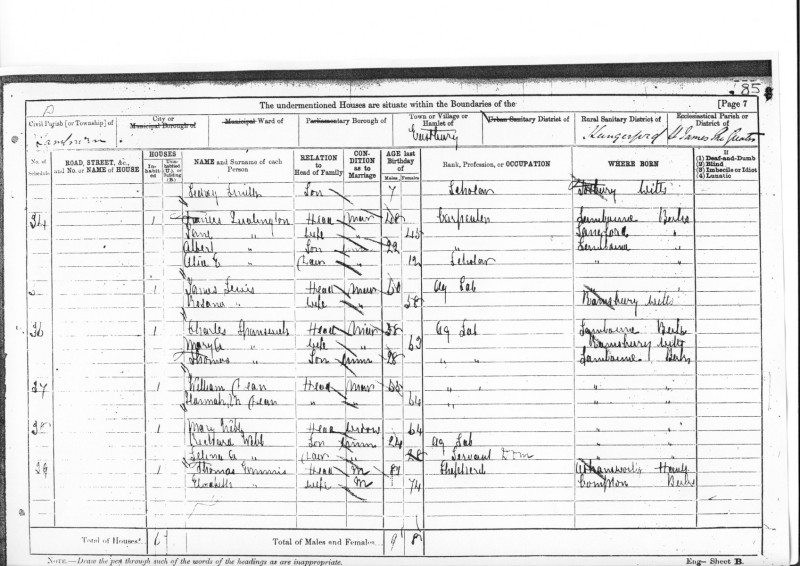 85
The undermentioned Houses are situate within the Boundaries of the
[Page 7
Civil Parish [or Township] of
City or Municipal Borough of
Municipal Ward of
Parliamentary Borough of
Town or Village or Hamlet of
Urban Sanitary District of
Rural Sanitary District of
Ecclesiastical Parish or District of
Lambourn
Eastbury
Hungerford
St James the Greater
No. of Schedule
ROAD, STREET, &c., and No. or NAME of HOUSE
HOUSES
Inhabited
Uninhabited (U.), or Building (B.)
NAME and Surname of each Person
RELATION to Head of Family
CONDITION as to Marriage
AGE last Birthday of
Males
Females
Rank, Profession, or OCCUPATION
WHERE BORN
If
(1) Deaf-and-Dumb
(2) Blind
(3) Imbecile or Idiot
(4) Lunatic
Smith Son 7 Scholar Wilts
34 1 Head Mar 58 Carpenter Lambourne Berks
Jane " Wife " 45 "
Albert " Son 22 " Lambourne "
" " 12 Scholar " "
1 James Lewis Head Mar 50 Ag Lab
" Wife " 58 Ramsbury Wilts
36 1 Charles Head Mar 58 Ag Lab Lambourne Berks
Mary A " Wife " 63 Ramsbury Wilts
Thomas " Son 28 " " Lambourne Berks
37 1 William Head Mar 55 " " " "
Hannah " " 64 " " " "
38 1 Mary Webb Head Widow 64 " "
Richard Webb Son 24 Ag Lab " "
Selina A " " 28 Servant Dom " "
39 1 Thomas Head M 81 Shepherd Hants
Elizabeth " Wife M 74 Compton Berks
Total of Houses 6
Total of Males and Females 9 8
NOTE.—Draw the pen through such of the words of the headings as are inappropriate.
Eng— Sheet B.